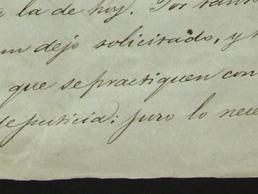 a la de hoy. Por tanto
un dejo solicitado, y
que se practiquen con
de justicia: juro lo nece